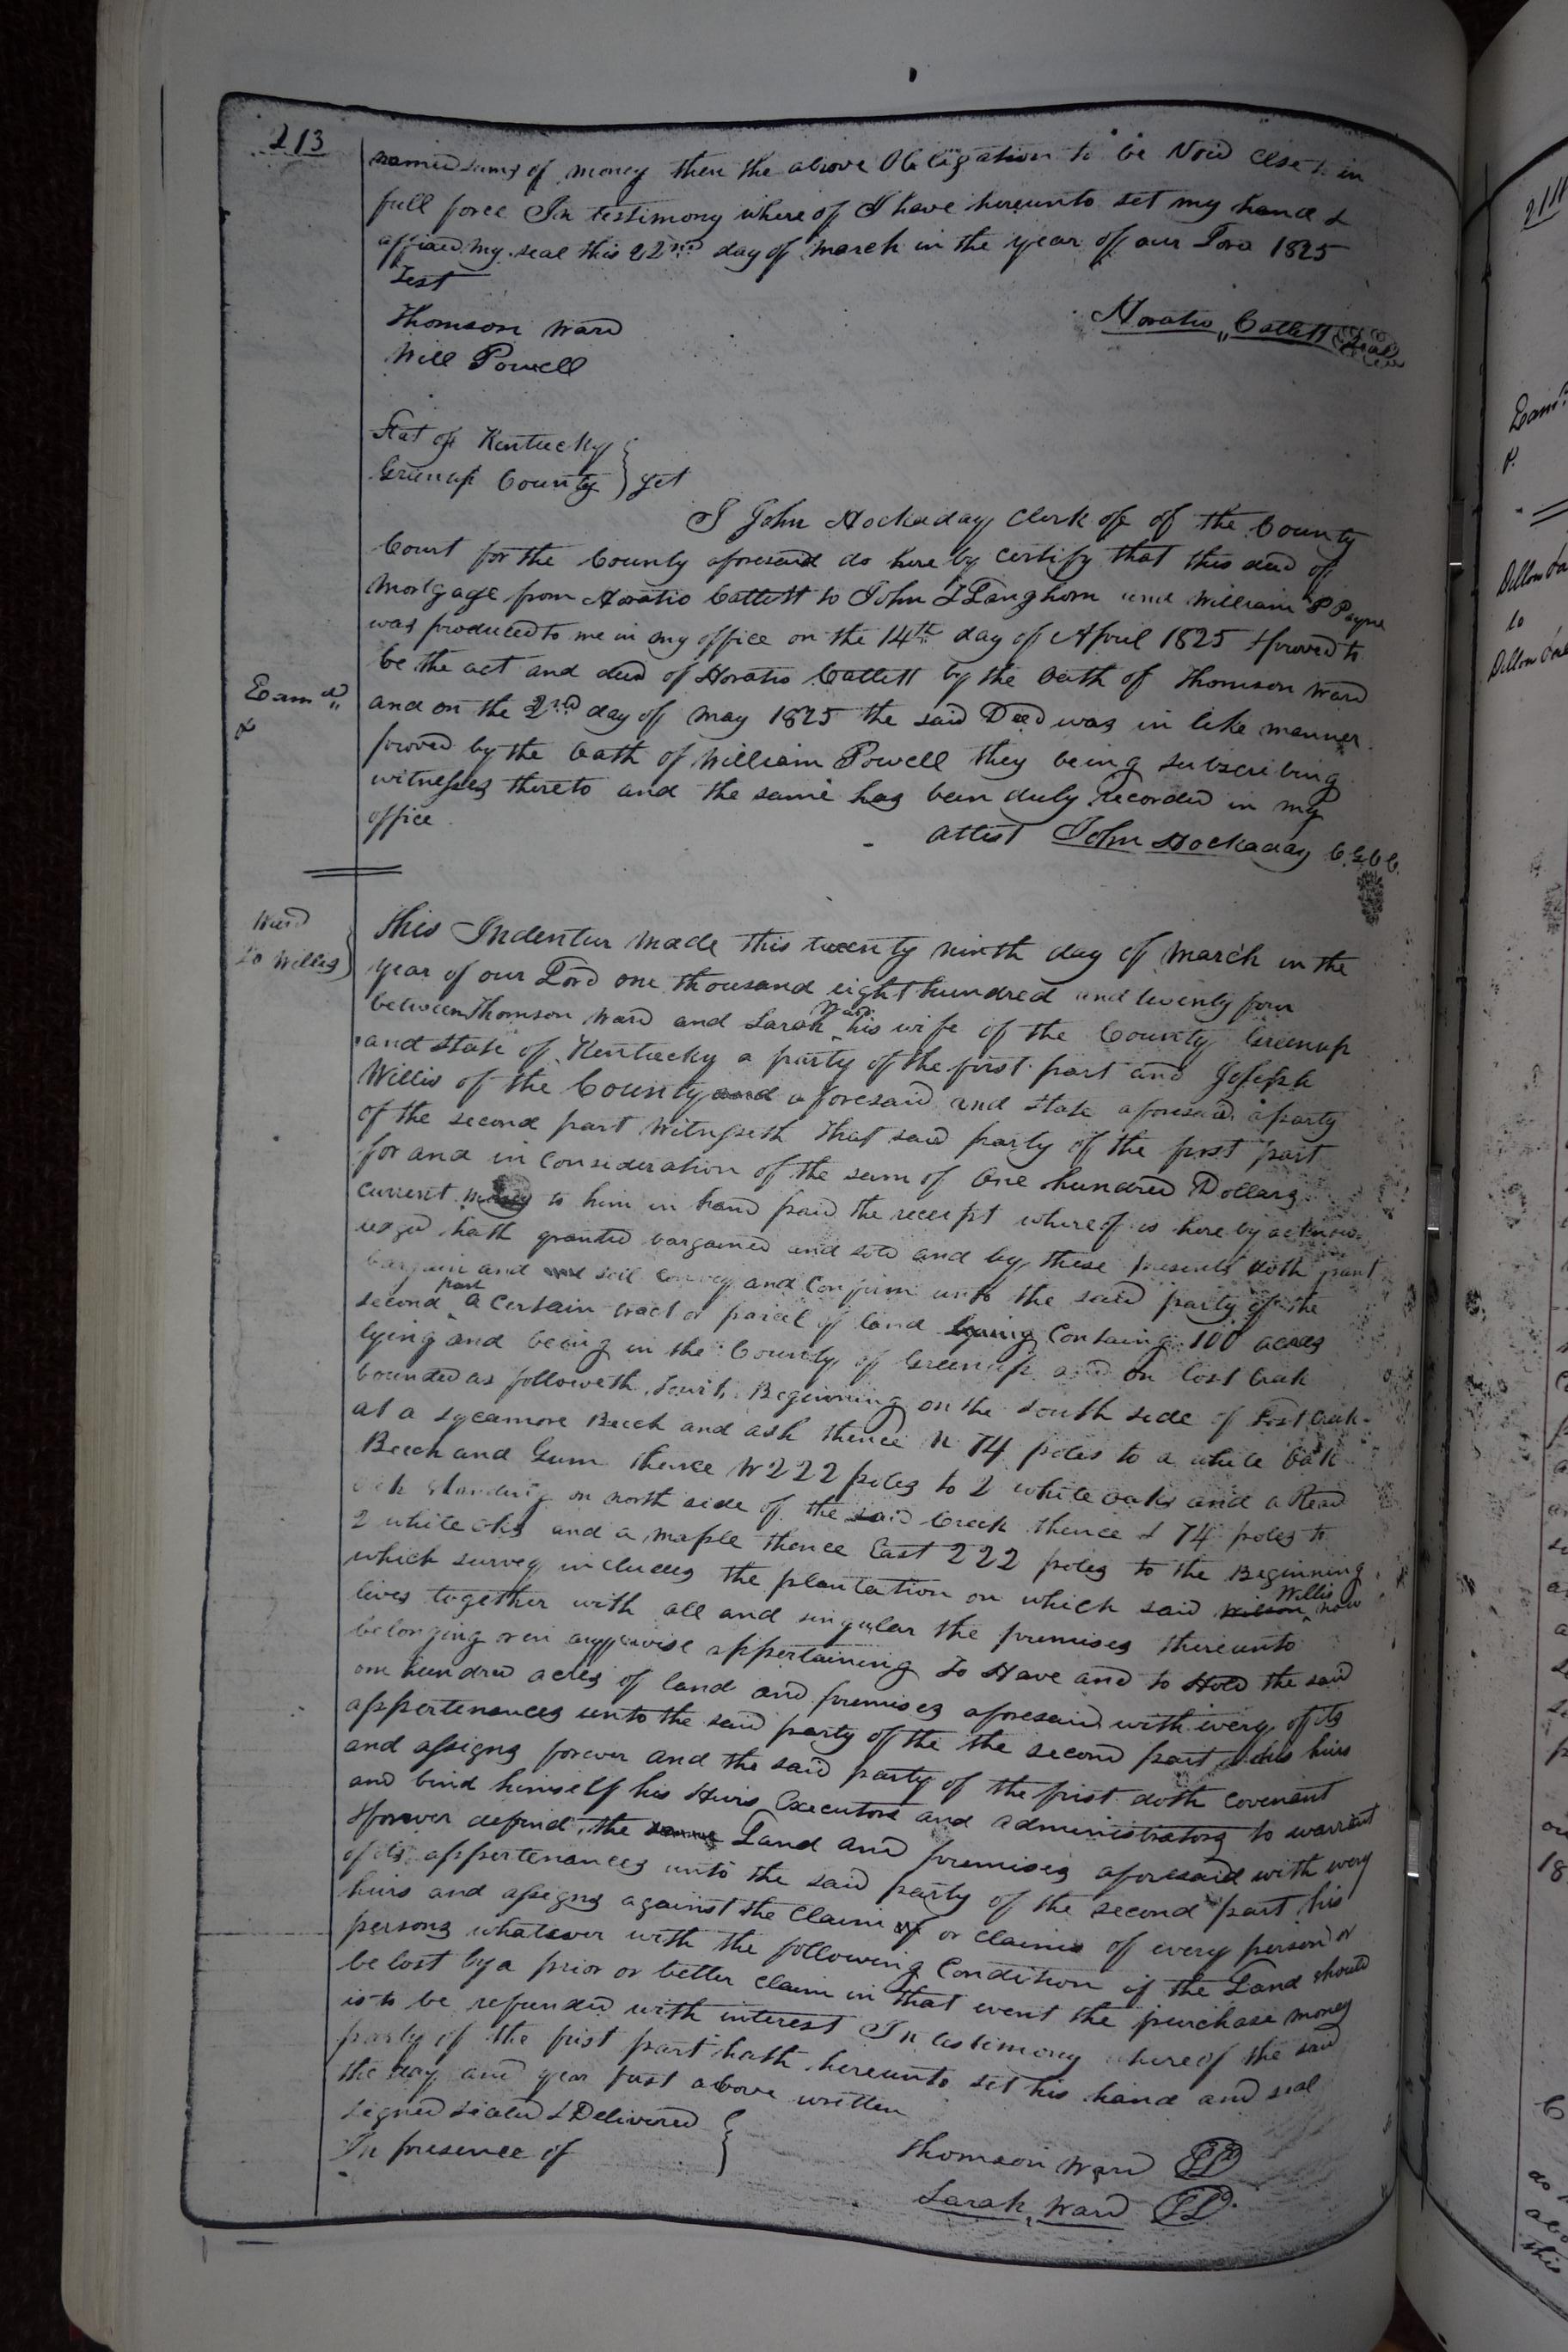 213
named sums of money then the above Obligation to be Void else to in
full force In testimony where of I have hereunto set my hand &
affixed my seal this 22nd day of march in the year of our Lord 1825
Test
Thomson Ward
Will Powell
Horatio Catlett Seal
Stat of Kentucky
Greenup County } Sct
I John Hockaday Clerk of of the County
Court for the County aforesaid do here by certify that this deed of
Mortgage from Horatio Catlett to John T Langhorn and William P Payne
was produced to me in my office on the 14th day of April 1825 & proved to
be the act and deed of Horatio Catlett by the Oath of Thomson Ward
Exam d
and on the 2nd day of may 1825 the said Deed was in like manner
proved by the Oath of William Powell they being subscribing
witnesses thereto and the same has been duly Recorded in my
office
attest John Hockaday C.G.C.C.
Ward
To Willis }
This Indentur made this twenty ninth day of March in the
year of our Lord one thousand eight hundred and twenty four
between Thomson Ward and Sarah Ward his wife of the County Greenup
and state of Kentucky a party of the first part and Joseph
Willis of the County and aforesaid and state aforesaid a party
of the second part Witnesseth That said party of the first part
for and in Consideration of the sum of One hundred Dollars
current money to him in hand paid the receipt where of is here by acknow
edged hath granted bargained and sold and by these presents doth grant
bargain and sell convey and Confirm unto the said party of the
second part a Certain tract or parcel of land lying Containg 100 acres
lying and being in the County of Greenup and on Lost Creek
bounded as followeth, Towit. Beginning on the South side of Lost Creek
at a Sycamore Beech and ash thence N 74 poles to a white Oak
Beech and Gum thence W 222 poles to 2 white oaks and a Read
oak standing on north side of the said Creek thence S 74 poles to
2 white oks and a maple thence East 222 poles to the Beginning
which survey includes the plantation on which said Wilson Willis now
lives together with all and singular the premises thereunto
belonging or in anywise appertaining To Have and to Hold the said
one hundred acres of land and premises aforesaid with every of its
appertenances unto the said party of the the second part & his heirs
and assigns forever and the said party of the first doth Covenant
and bind himself his Heirs Executors and administrators to warrant
& forever defend the same Land and premises aforesaid with every
of its appertenances unto the said party of the second part his
heirs and assigns against the Claim of or claims of every person or
persons whatever with the following Condition if the Land should
be lost by a prior or better claim in that event the purchase money
is to be refunded with interest In testimony whereof the said
party of the first part hath hereunto set his hand and seal
the day and year first above written
Signed sealed & Delivered
In presence of }
Thomson Ward
Sarah Ward